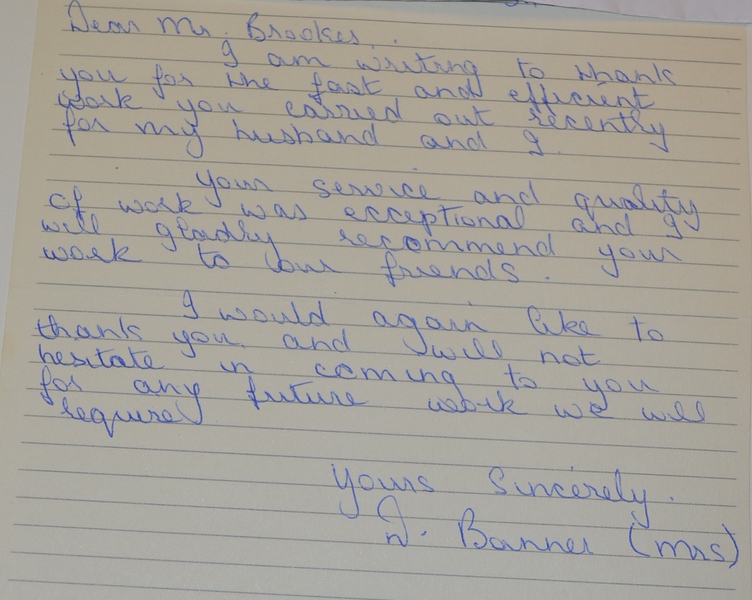 Dear Mr. Brookes.
I am writing to thank
you for the fast and efficient
work you carried out recently
for my husband and I.
Your service and quality
of work was exceptional and I
will gladly recommend your
work to our friends.
I would again like to
thank you and will not
hesitate in coming to you
for any future work we will
require
Yours Sincerely.
Banner (Mrs)